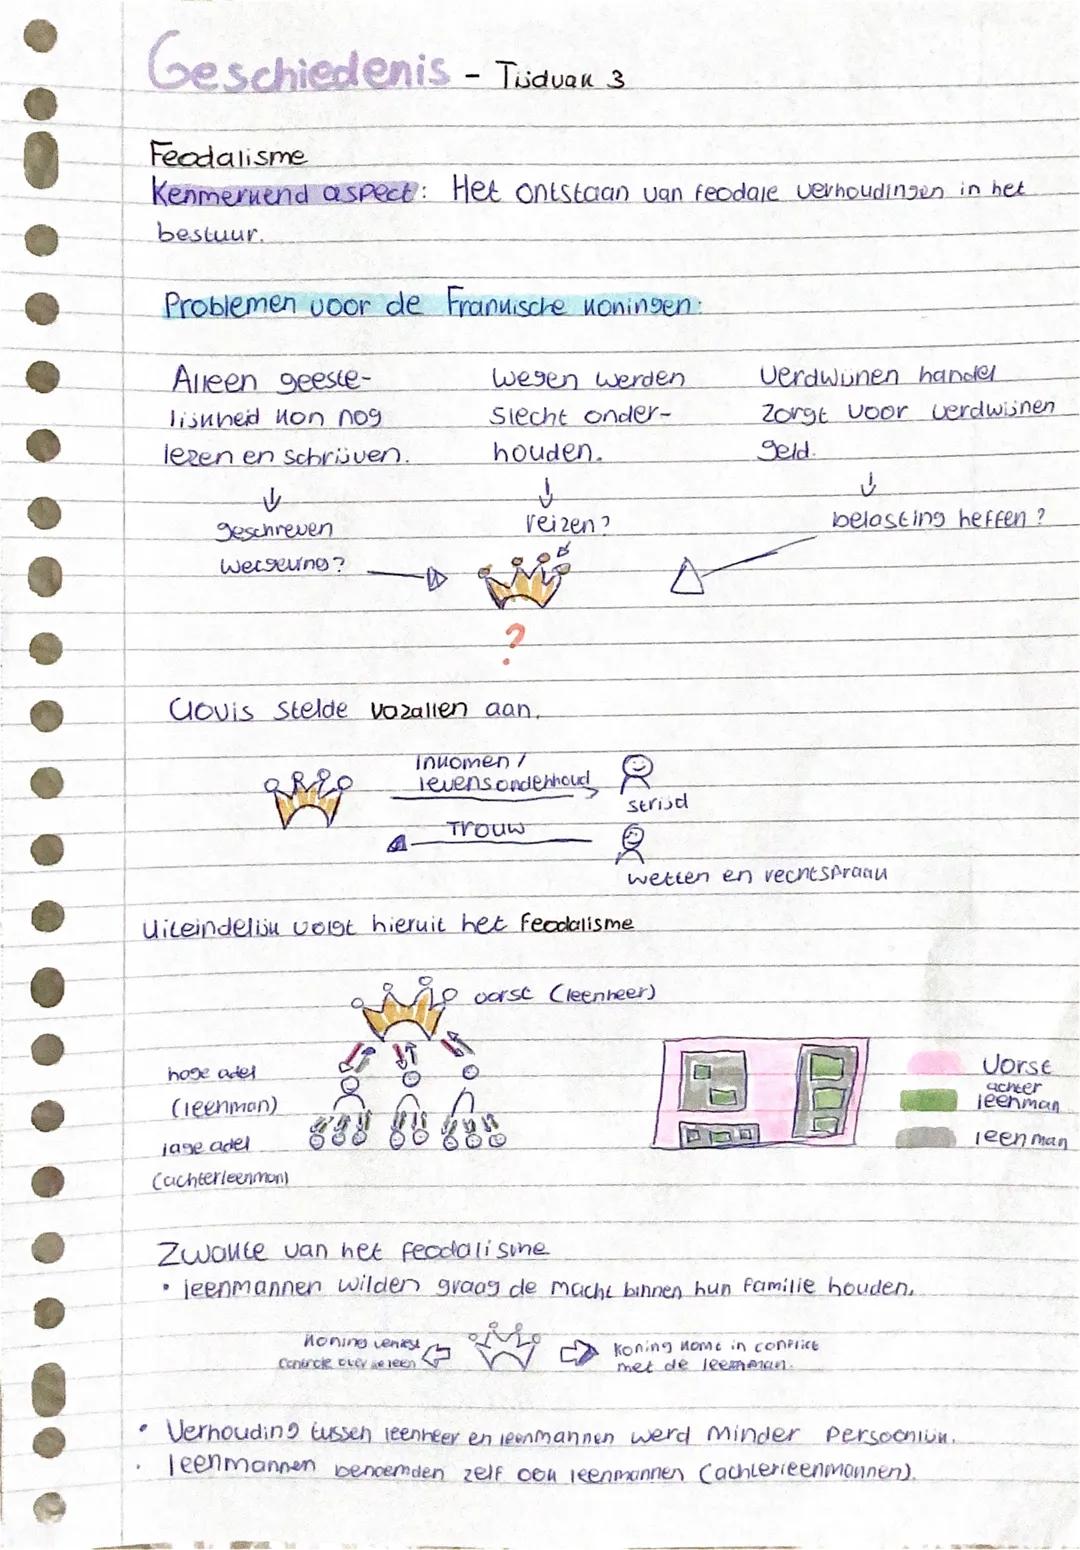 Geschiedenis - Tijdvak 3
Feodalisme
Kenmerkend aspect: Het ontstaan van feodale verhoudingen in het
bestuur.
Problemen voor de Frankische koningen:
Alleen geeste-
lijkheid kon nog
lezen en schrijven.
↓
geschreven
wetgeving?
wegen werden
slecht onder-
houden.
↓
reizen?
Verdwijnen handel
zorgt voor verdwijnen
geld.
↓
belasting heffen?
?
Clovis stelde vazallen aan.
inkomen /
levensonderhoud
strijd
Trouw
wetten en rechtspraak
Uiteindelijk volgt hieruit het feodalisme
vorst (leenheer)
hoge adel
(leenman)
lage adel
(achterleenman)
Vorst
achter
leenman
leenman
Zwakte van het feodalisme
• leenmannen wilden graag de macht binnen hun familie houden.
Koning verliest
controle over
Koning komt in conflict
met de leenman.
• Verhouding tussen leenheer en leenmannen werd minder persoonlijk.
• leenmannen benoemden zelf ook leenmannen (achterleenmannen).